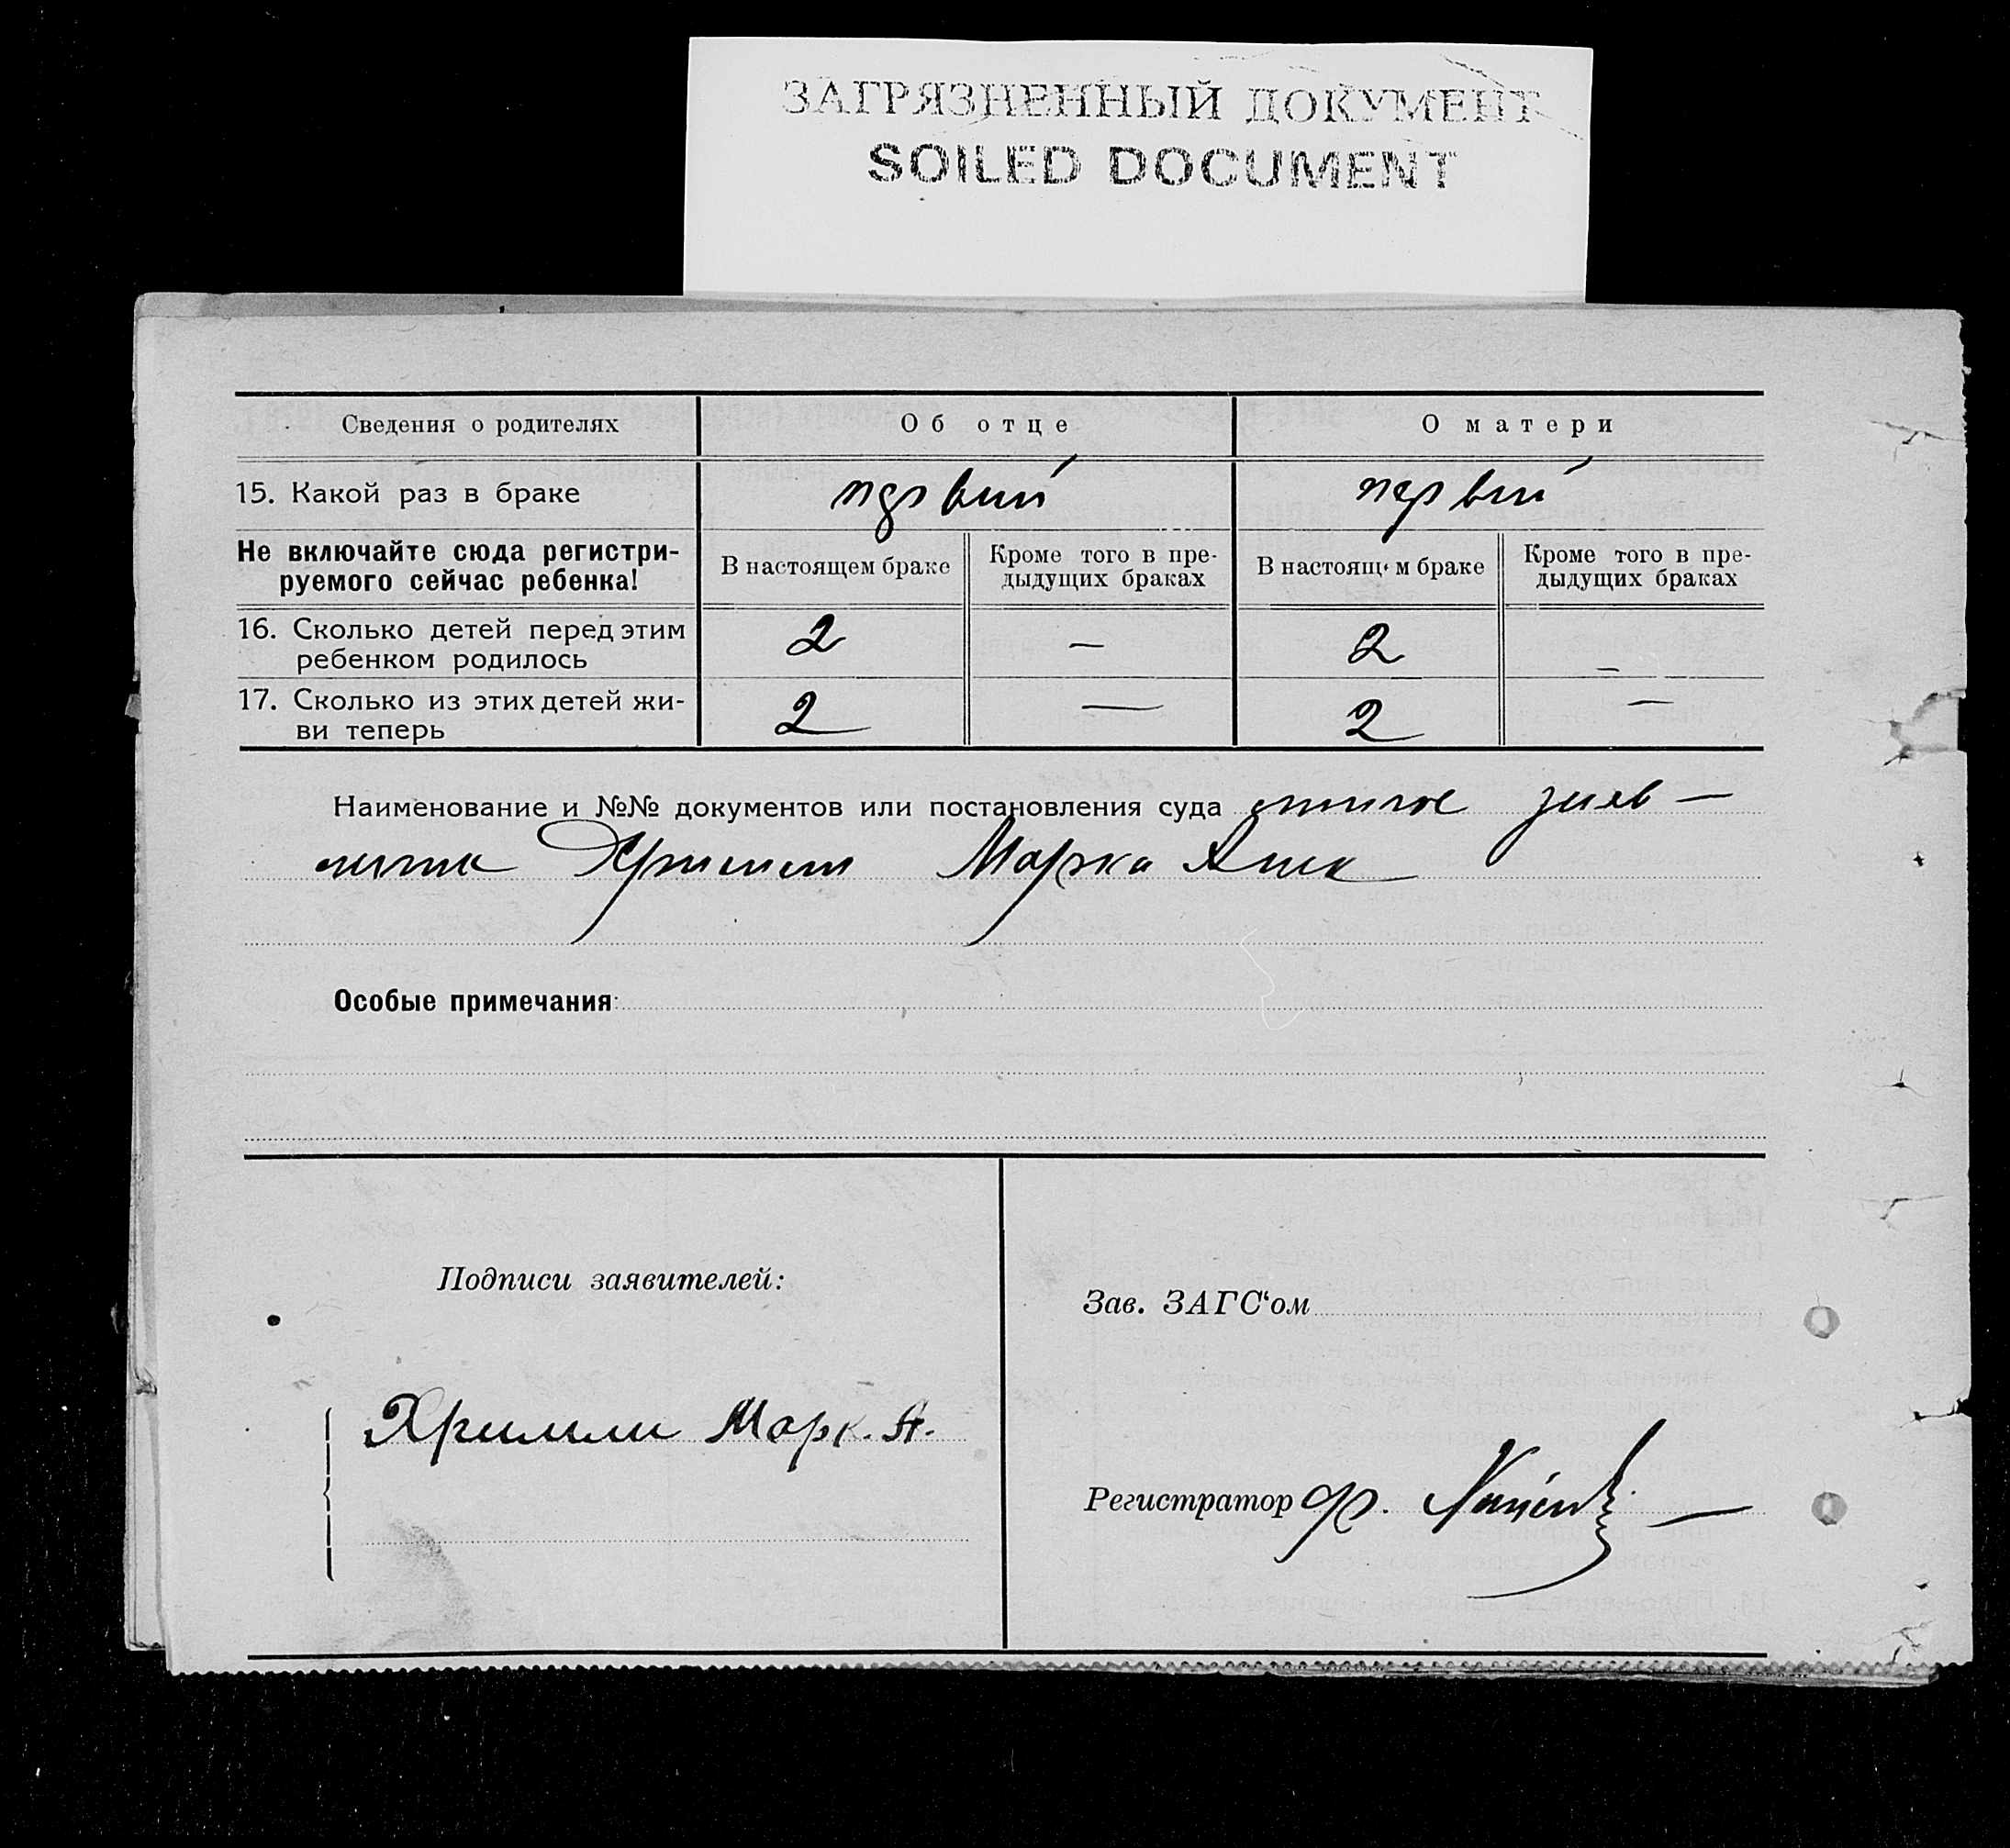 ЗАГРЯЗНЕННЫЙ ДОКУМЕНТ
SOILED DOCUMENT
Сведения о родителях Об отце О матери
15. Какой раз в браке первый первый
Не включайте сюда регистри-
руемого сейчас ребенка!
В настоящем браке
Кроме того в пре-
дыдущих браках
В настоящем браке
Кроме того в пре-
дыдущих браках
16. Сколько детей перед этим
ребенком родилось 2 — 2 —
17. Сколько из этих детей жи-
ви теперь 2 — 2 —
Наименование и №№ документов или постановления суда
Марка
Особые примечания:
Подписи заявителей:
Марк. А.
Зав. ЗАГС‘ом
Регистратор